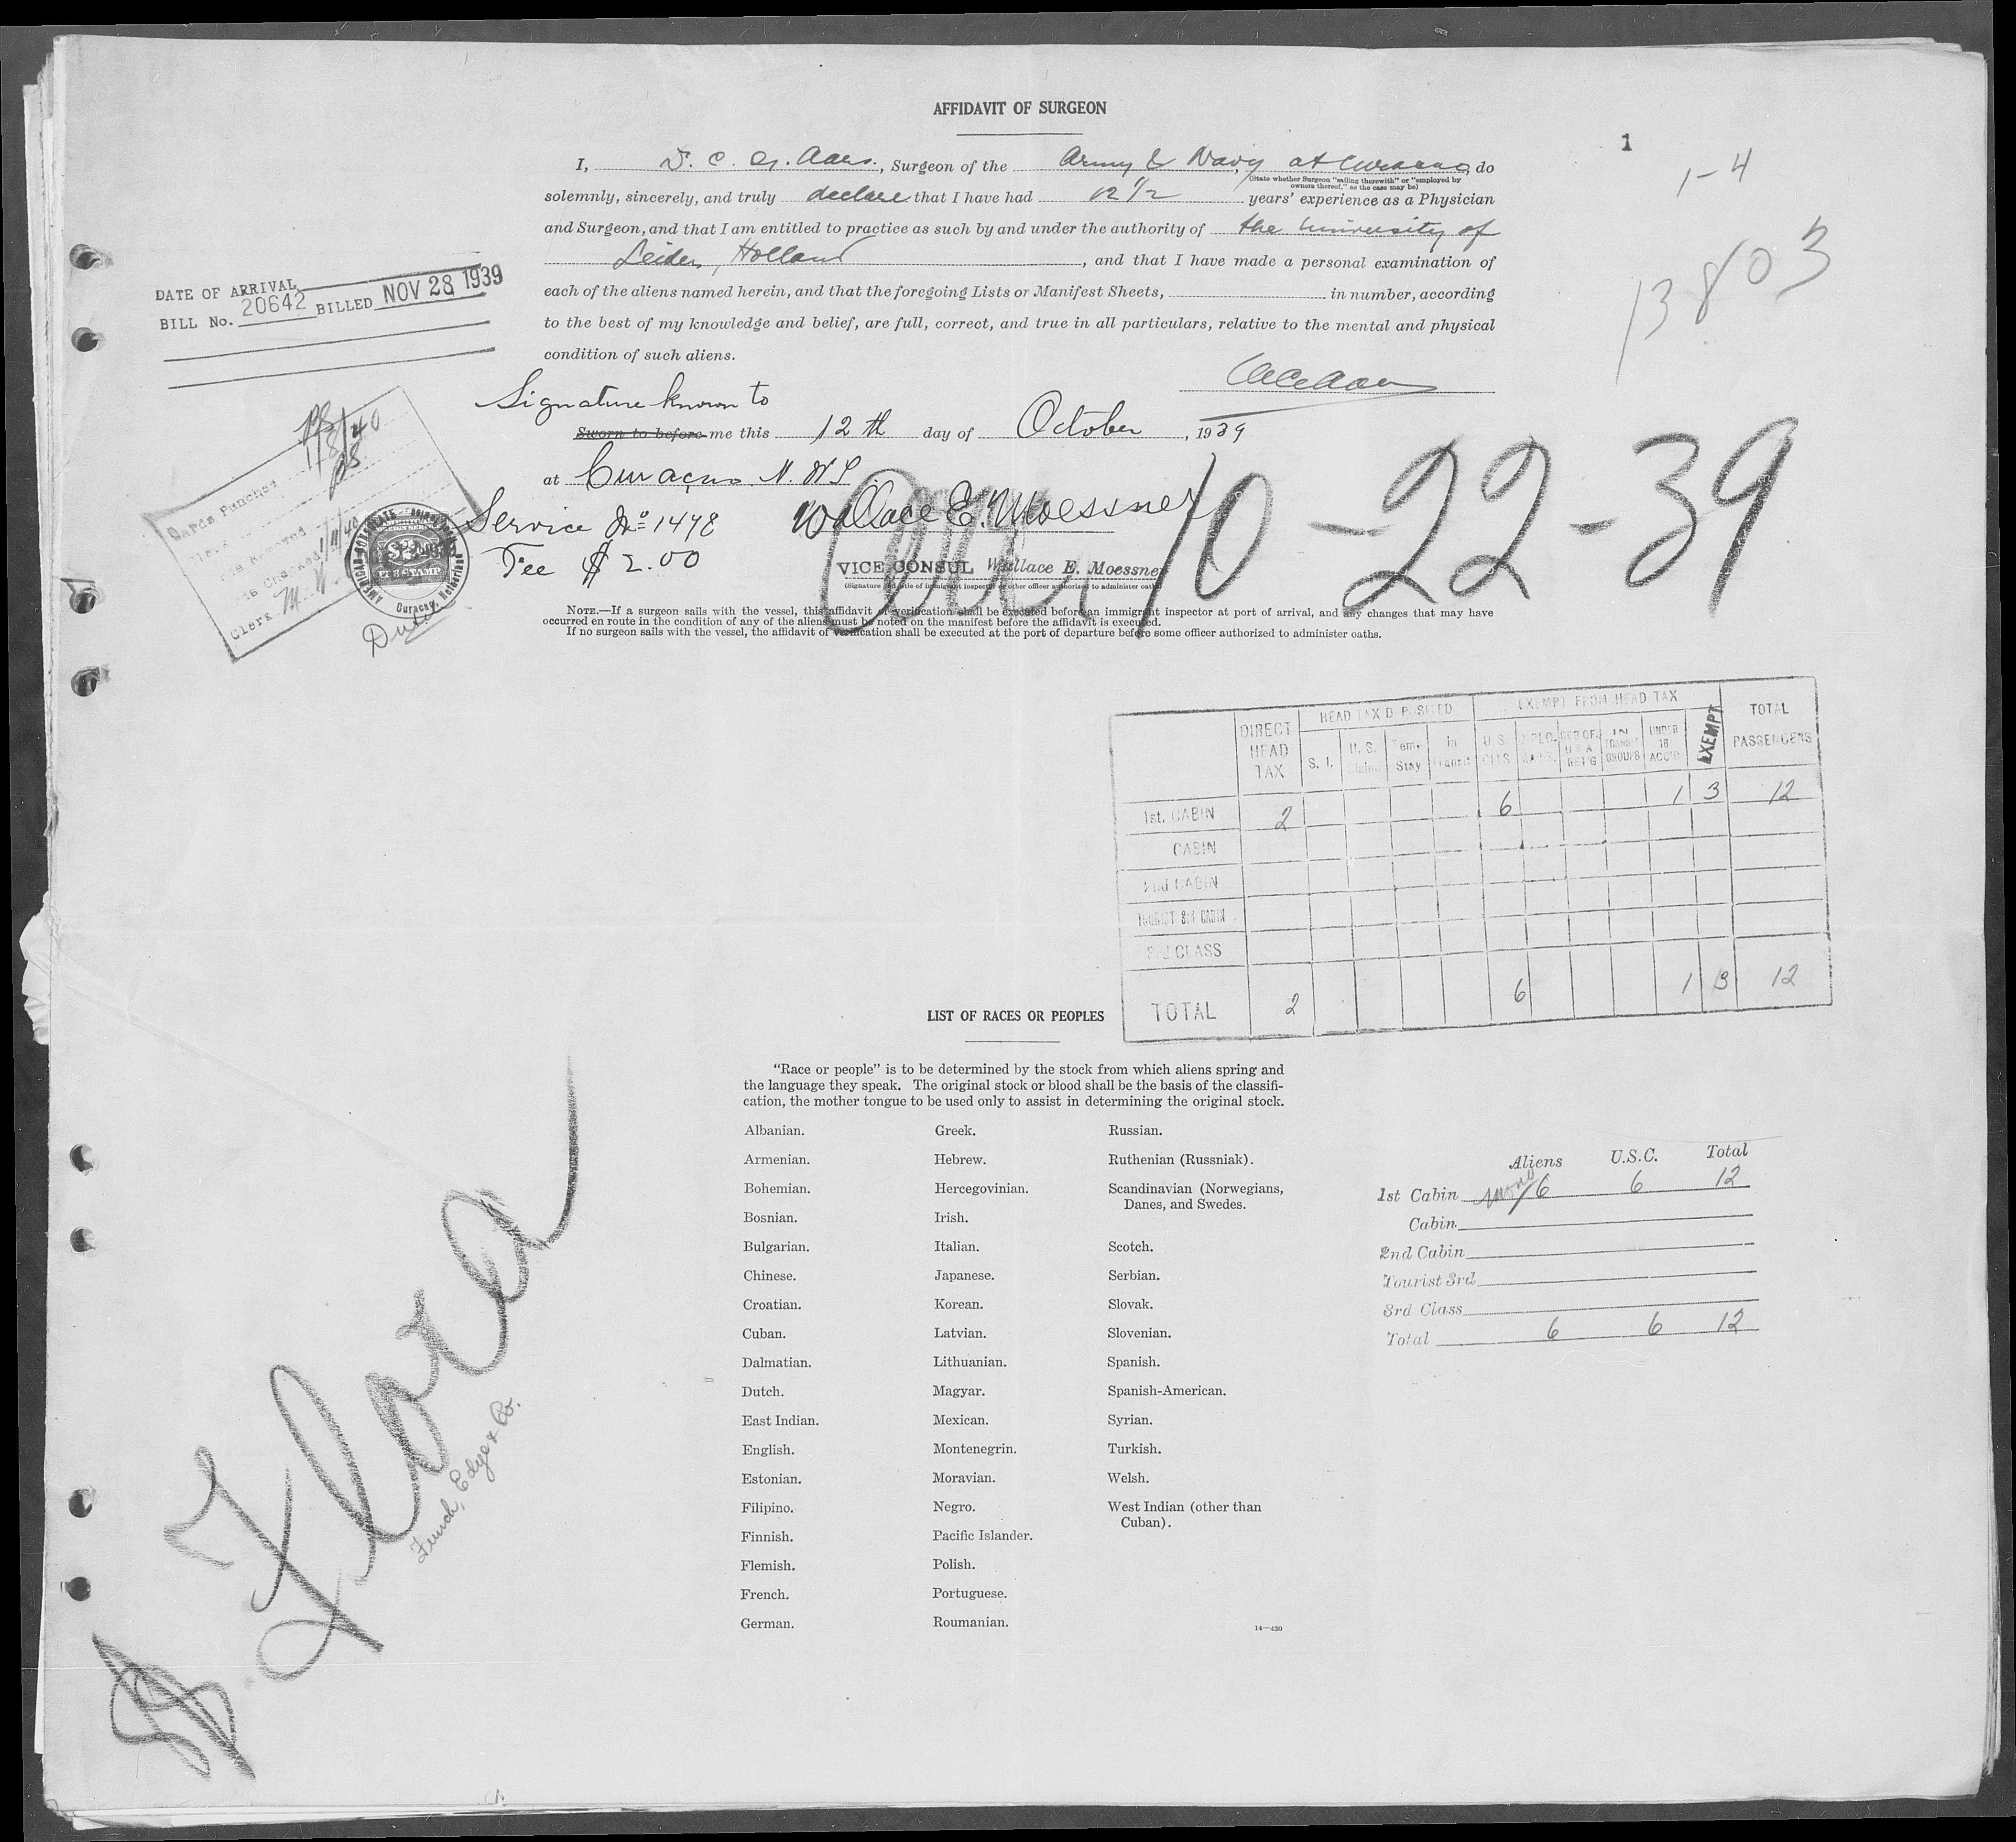 AFFIDAVIT OF SURGEON
1
1-4
13803
I, Surgeon of the Army & Navy, at Curacao, do
(State whether Surgeon "sailing therewith" or "employed by owners thereof," as the case may be)
solemnly, sincerely, and truly declare that I have had 12 1/2 years' experience as a Physician
and Surgeon, and that I am entitled to practice as such by and under the authority of the University of
Leiden, Holland, and that I have made a personal examination of
each of the aliens named herein, and that the foregoing Lists or Manifest Sheets, in number, according
to the best of my knowledge and belief, are full, correct, and true in all particulars, relative to the mental and physical
condition of such aliens.
DATE OF ARRIVAL
BILL No. 20642 BILLED NOV 28 1939
Signature known to
Sworn to before me this 12th day of October, 1939
at Curaçao N.W.I.
Service No 1478
Fee $ 2.00
Wallace E. Moessner
VICE CONSUL Wallace E. Moessner
Arr. 10-22-39
Cards Punched
Clerk
NOTE.—If a surgeon sails with the vessel, this affidavit of verification shall be executed before an immigrant inspector at port of arrival, and any changes that may have
occurred en route in the condition of any of the aliens must be noted on the manifest before the affidavit is executed.
If no surgeon sails with the vessel, the affidavit of verification shall be executed at the port of departure before some officer authorized to administer oaths.
DIRECT HEAD TAX
HEAD TAX DEPOSITED
EXEMPT FROM HEAD TAX
TOTAL PASSENGERS
S. I.
U. S.
Tem. Stay
In Transit
U.S. CITS
IN TRANSIT GROUPS
UNDER 16 ACC'D
EXEMPT
1st. CABIN 2 6 1 3 12
CABIN
2nd CABIN
TOURIST 3rd CABIN
3rd CLASS
TOTAL 2 6 1 3 12
LIST OF RACES OR PEOPLES
"Race or people" is to be determined by the stock from which aliens spring and
the language they speak. The original stock or blood shall be the basis of the classifi-
cation, the mother tongue to be used only to assist in determining the original stock.
Albanian.
Armenian.
Bohemian.
Bosnian.
Bulgarian.
Chinese.
Croatian.
Cuban.
Dalmatian.
Dutch.
East Indian.
English.
Estonian.
Filipino.
Finnish.
Flemish.
French.
German.
Greek.
Hebrew.
Hercegovinian.
Irish.
Italian.
Japanese.
Korean.
Latvian.
Lithuanian.
Magyar.
Mexican.
Montenegrin.
Moravian.
Negro.
Pacific Islander.
Polish.
Portuguese.
Roumanian.
Russian.
Ruthenian (Russniak).
Scandinavian (Norwegians,
Danes, and Swedes.
Scotch.
Serbian.
Slovak.
Slovenian.
Spanish.
Spanish-American.
Syrian.
Turkish.
Welsh.
West Indian (other than
Cuban).
14—430
Aliens U.S.C. Total
1st Cabin 6 6 12
Cabin
2nd Cabin
Tourist 3rd
3rd Class
Total 6 6 12
Flora
Funch, Edye & Co.